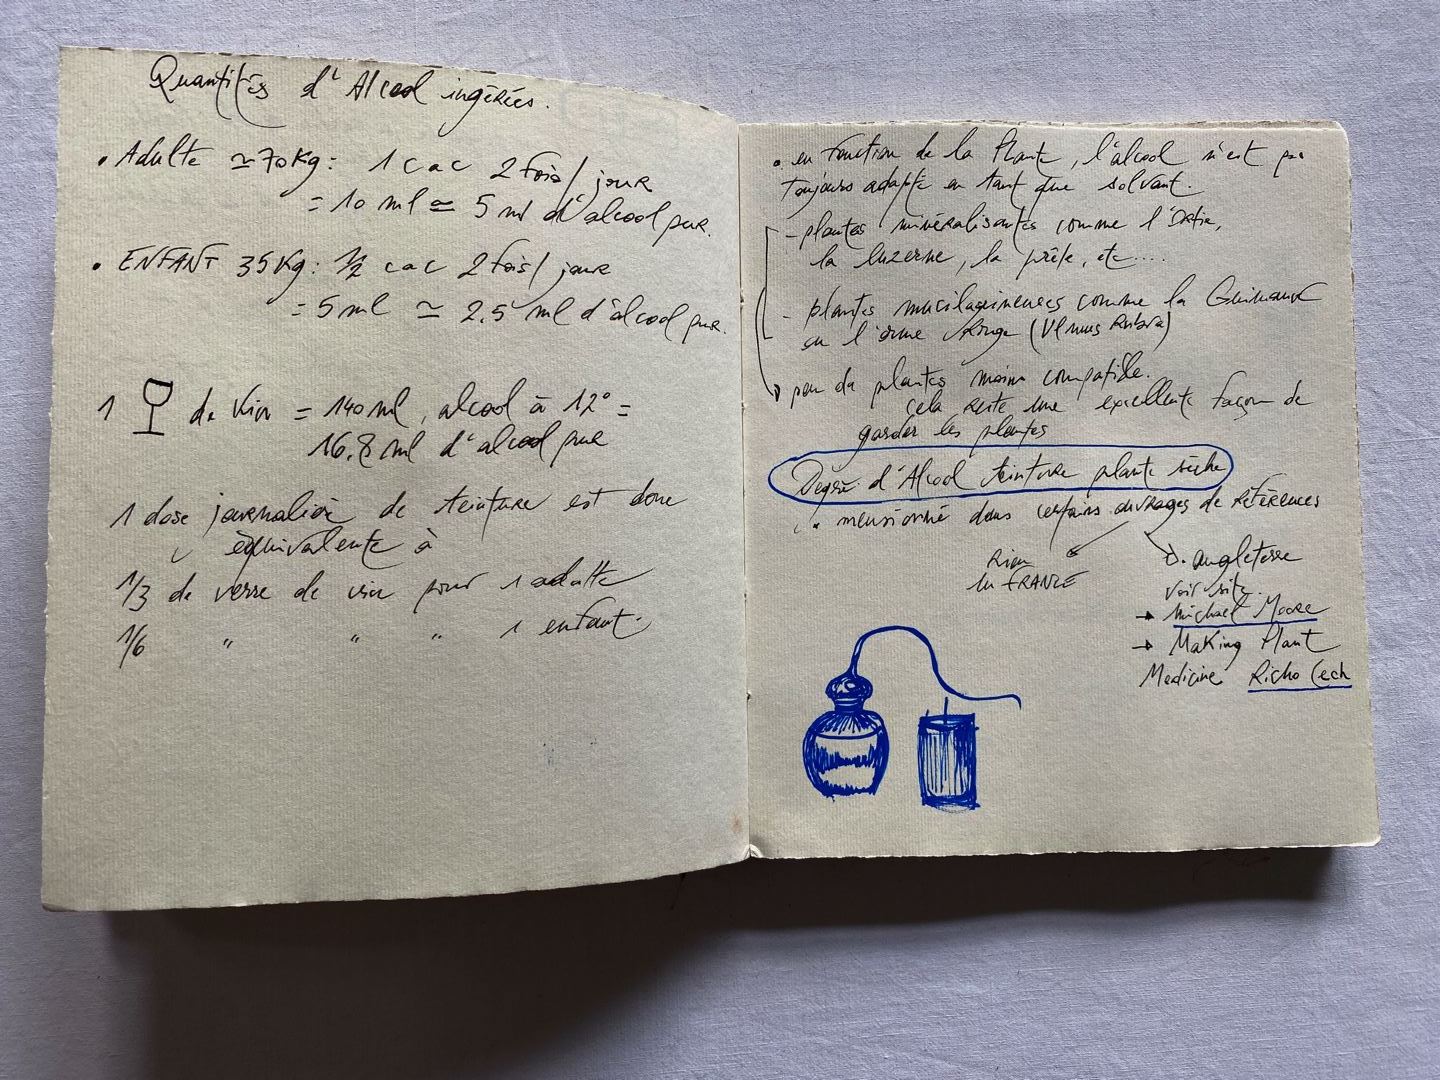 Quantités d'Alcool ingérées.
• Adulte ≃ 70kg : 1 cac 2 fois/jour
= 10 ml ≃ 5 ml d'alcool pur.
• ENFANT 35kg : 1/2 cac 2 fois/jour
= 5 ml ≃ 2.5 ml d'alcool pur.
1 de vin = 140 ml, alcool à 12° =
16.8 ml d'alcool pur
1 dose journalière de teinture est donc
équivalente à
1/3 de verre de vin pour 1 adulte
1/6 " " " 1 enfant.
• en fonction de la Plante, l'alcool n'est pas
toujours adapté en tant que solvant.
- plantes minéralisantes comme l'Ortie,
la luzerne, la prêle, etc....
- plantes mucilagineuses comme la Guimauve
ou l'orme Rouge (Ulmus Rubra)
peu de plantes moins compatible.
cela reste une excellente façon de
garder les plantes
Degré d'Alcool teinture plante sèche
• mensionné dans certains ouvrages de références
Rien
en FRANCE
angleterre
voir site
→ Michael Moore
→ Making Plant
Medicine Richo Cech